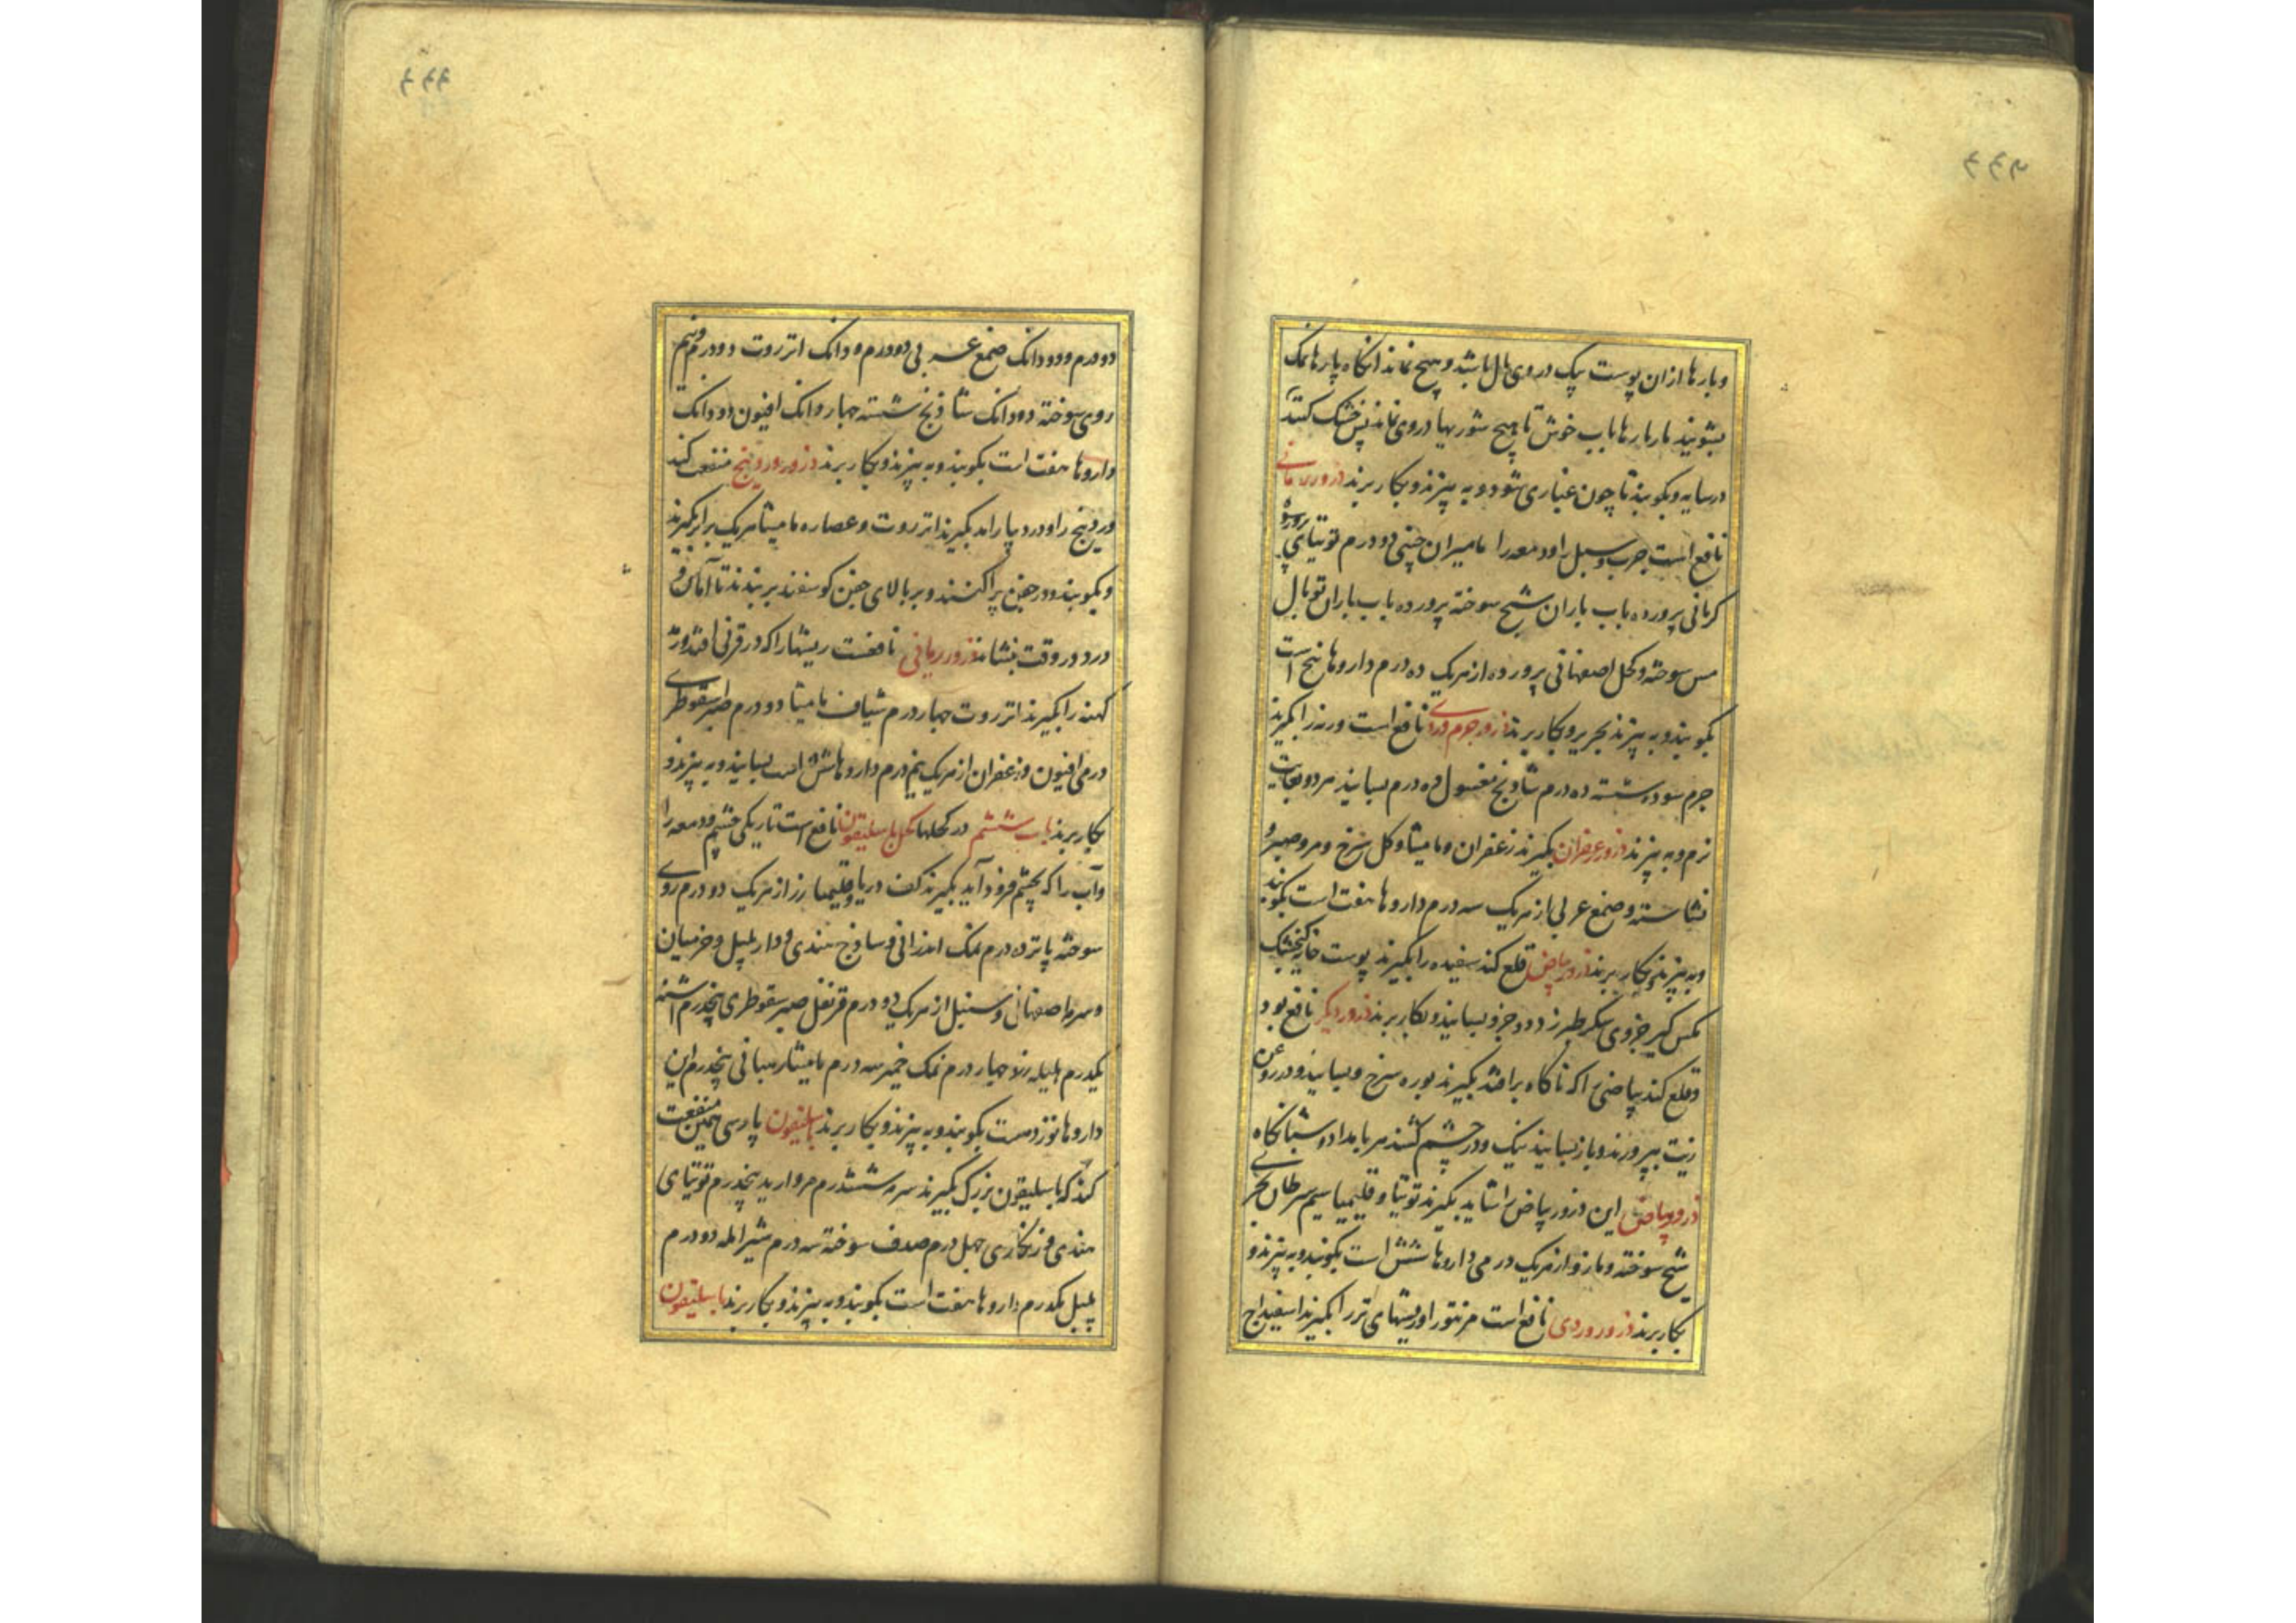 وبارها ازان پوست پیک دروی مال باشد و هیچ نماند انکاه پارها نمک
بشویند بار بارها باب خوش تا هیچ شوریها دروی نماند پس خشک کنند
درسایه وبکوبند تا چون غباری شود وبه بیزند وبکار برند ذرور رمانی
نافع است جرب وسبل ودمعه را مامیران چینی دو درم توتیای
کرمانی پرورده باب باران شیح سوخته پرورده باب باران توبال
مس سوخته وکحل اصفهانی پرورده از هریک ده درم داروها پنج است
بکوبند وبه بیزند بحریر وبکار برند ذرور جرم وردی نافع است وردنرا بکیرند
جرم سوده شسته ده درم شاذنج مغسول ده درم بسایند هر دو بغایت
نرم وبه بیزند ذرور زعفران بکیرند زعفران ومامیثا وکل سرخ ومر وصبر و
نشاسته وصمغ عربی از هریک سه درم داروها هفت است بکوبند
وبه بیزند وبکار برند ذرور بیاض قلع کند سفیده را بکیرند پوست خایه کنجشک
مکس کیر جزوی سکر طبرزد دو جزو بسایند وبکار برند ذرور دیکر نافع بود
وقلع کند بیاضی را که ناکاه برافتد بکیرند بوره سرخ وبسایند ودر روغن
زیت بپرورند وباز بسایند نیک ودر چشم کشند هر بامداد وشبانکاه
ذرور بیاض این ذرور بیاض را شاید بکیرند توتیا وقلیمیا سیم سرطان بحری
شیح سوخته ومازو از هریک درمی داروها شش است بکوبند وبه بیزند و
بکار برند ذرور وردی نافع است مر نتو را وریشهای تر را بکیرند اسفیداج
دو درم ودو دانک صمغ عربی دو درم ودانک انزروت دو درم ونیم
روی سوخته دو دانک شاذنج شسته چهار دانک افیون دو دانک
داروها هفت است بکوبند وبه بیزند وبکار برند ذرور وردینج منفعت کند
وردینج را ودرد پارا بد بکیرند انزروت وعصاره مامیثا هریک برابر بکیرند
وبکوبند ودر جفن پراکنند وبر بالای جفن کوسفند بربندند تا آماس و
درد در وقت بنشاند ذرور ربانی نافعست ریشها را که در قرنی افتد ورمد
کهنه را بکیرند انزروت چهار درم شیاف مامیثا دو درم صبر اسقوطری
درمی افیون وزعفران از هریک نیم درم داروها شش است بسایند وبه بیزند و
بکار برند باب ششم در کحلها کحل باسلیقون نافع است تاریکی چشم ودمعه را
وآب را که بچشم فروذ آید بکیرند کف دریا وقلیمیا زر از هریک دو درم روی
سوخته پانزده درم نمک اندرانی وساذج هندی ودار پلپل وخرمیان
وسرمه اصفهانی وسنبل از هریک دو درم قرنفل صبر سقوطری پنجدرم اشنه
یکدرم هلیله زرد چهار درم نمک خمیر سه درم مامیثا رمبانی پنجدرم این
داروها نوزدست بکوبند وبه بیزند وبکار برند باسلیقون پارسی همین منفعت
کند که باسلیقون بزرک بکیرند سرمه شش درم مروارید پنجدرم توتیای
هندی وزنکاری چهل درم صدف سوخته سه درم شیر املد دو درم
پلپل یکدرم داروها هفت است بکوبند وبه بیزند وبکار برند باسلیقون